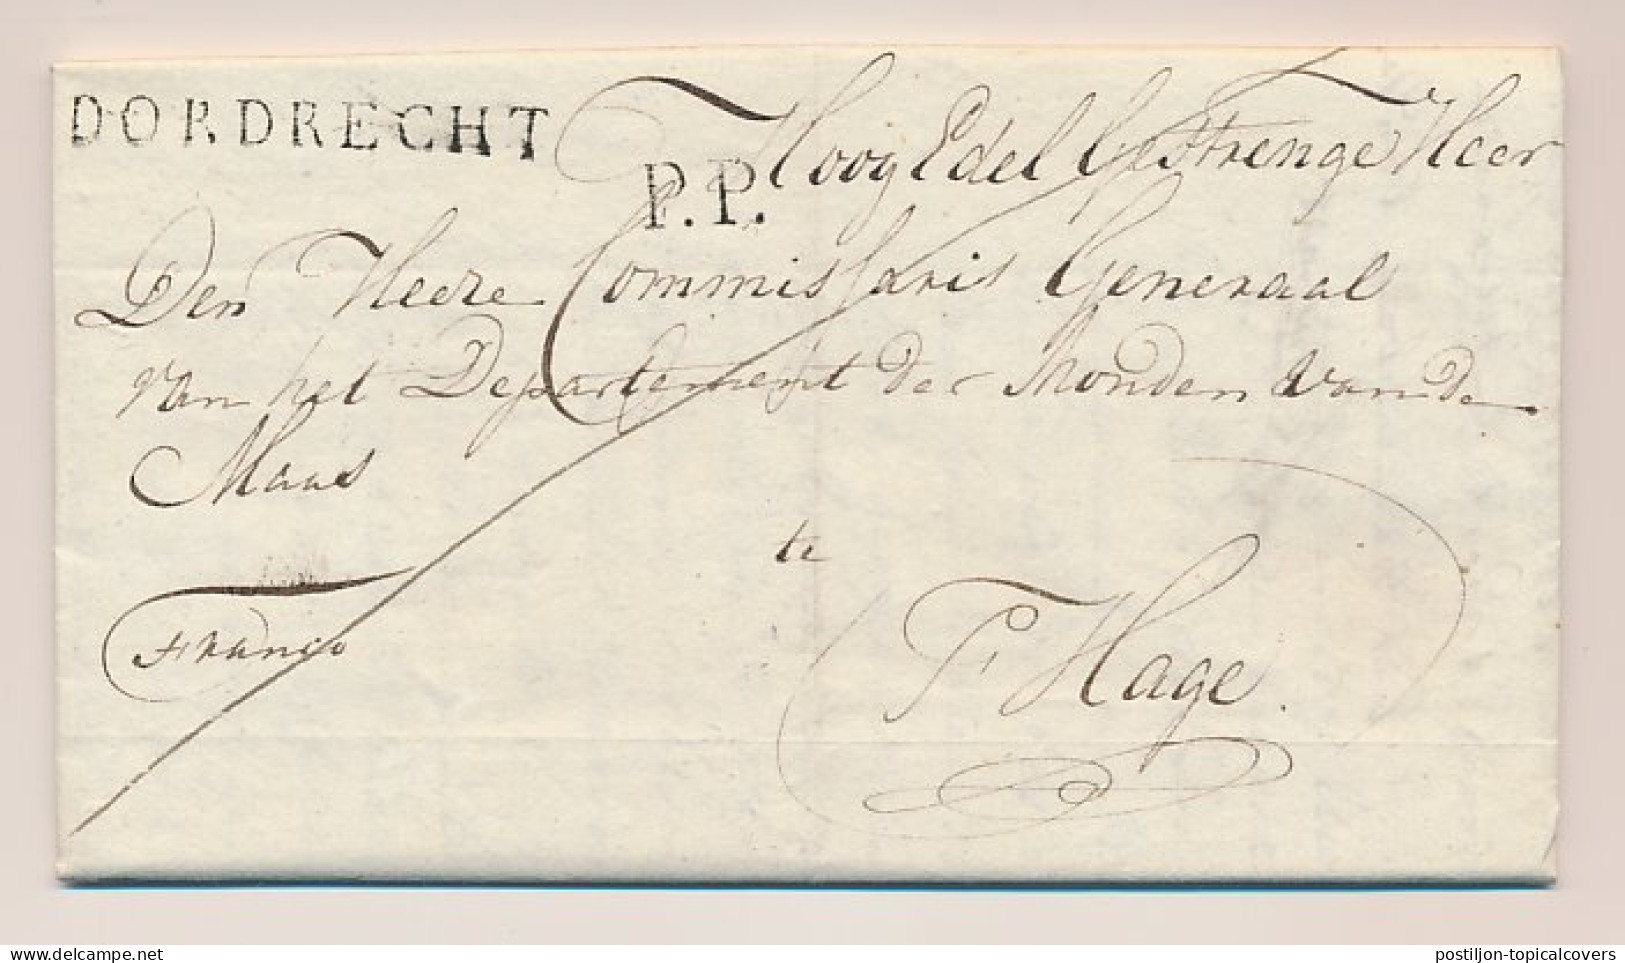 DORDRECHT
P.P.
Hoog Edel Gestrenge Heer
Den Heere Commissaris Generaal
van het Departement der Monden van de
Maas
te
Franco
's Hage.
delcampe.net
postiljon-topicalcovers